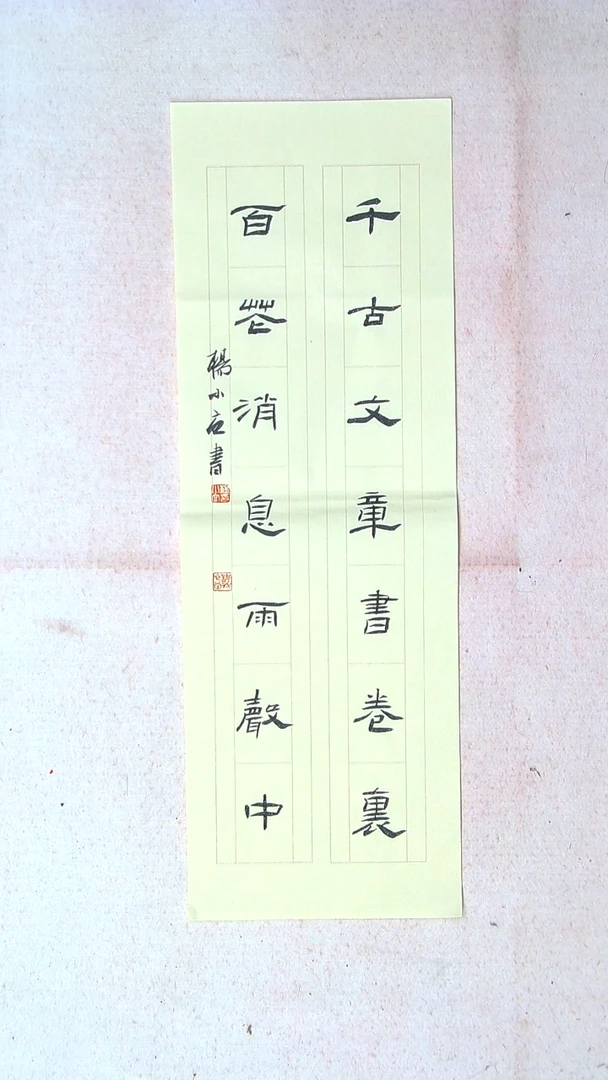 千古文章書卷裏
百花消息雨聲中
楊小石書